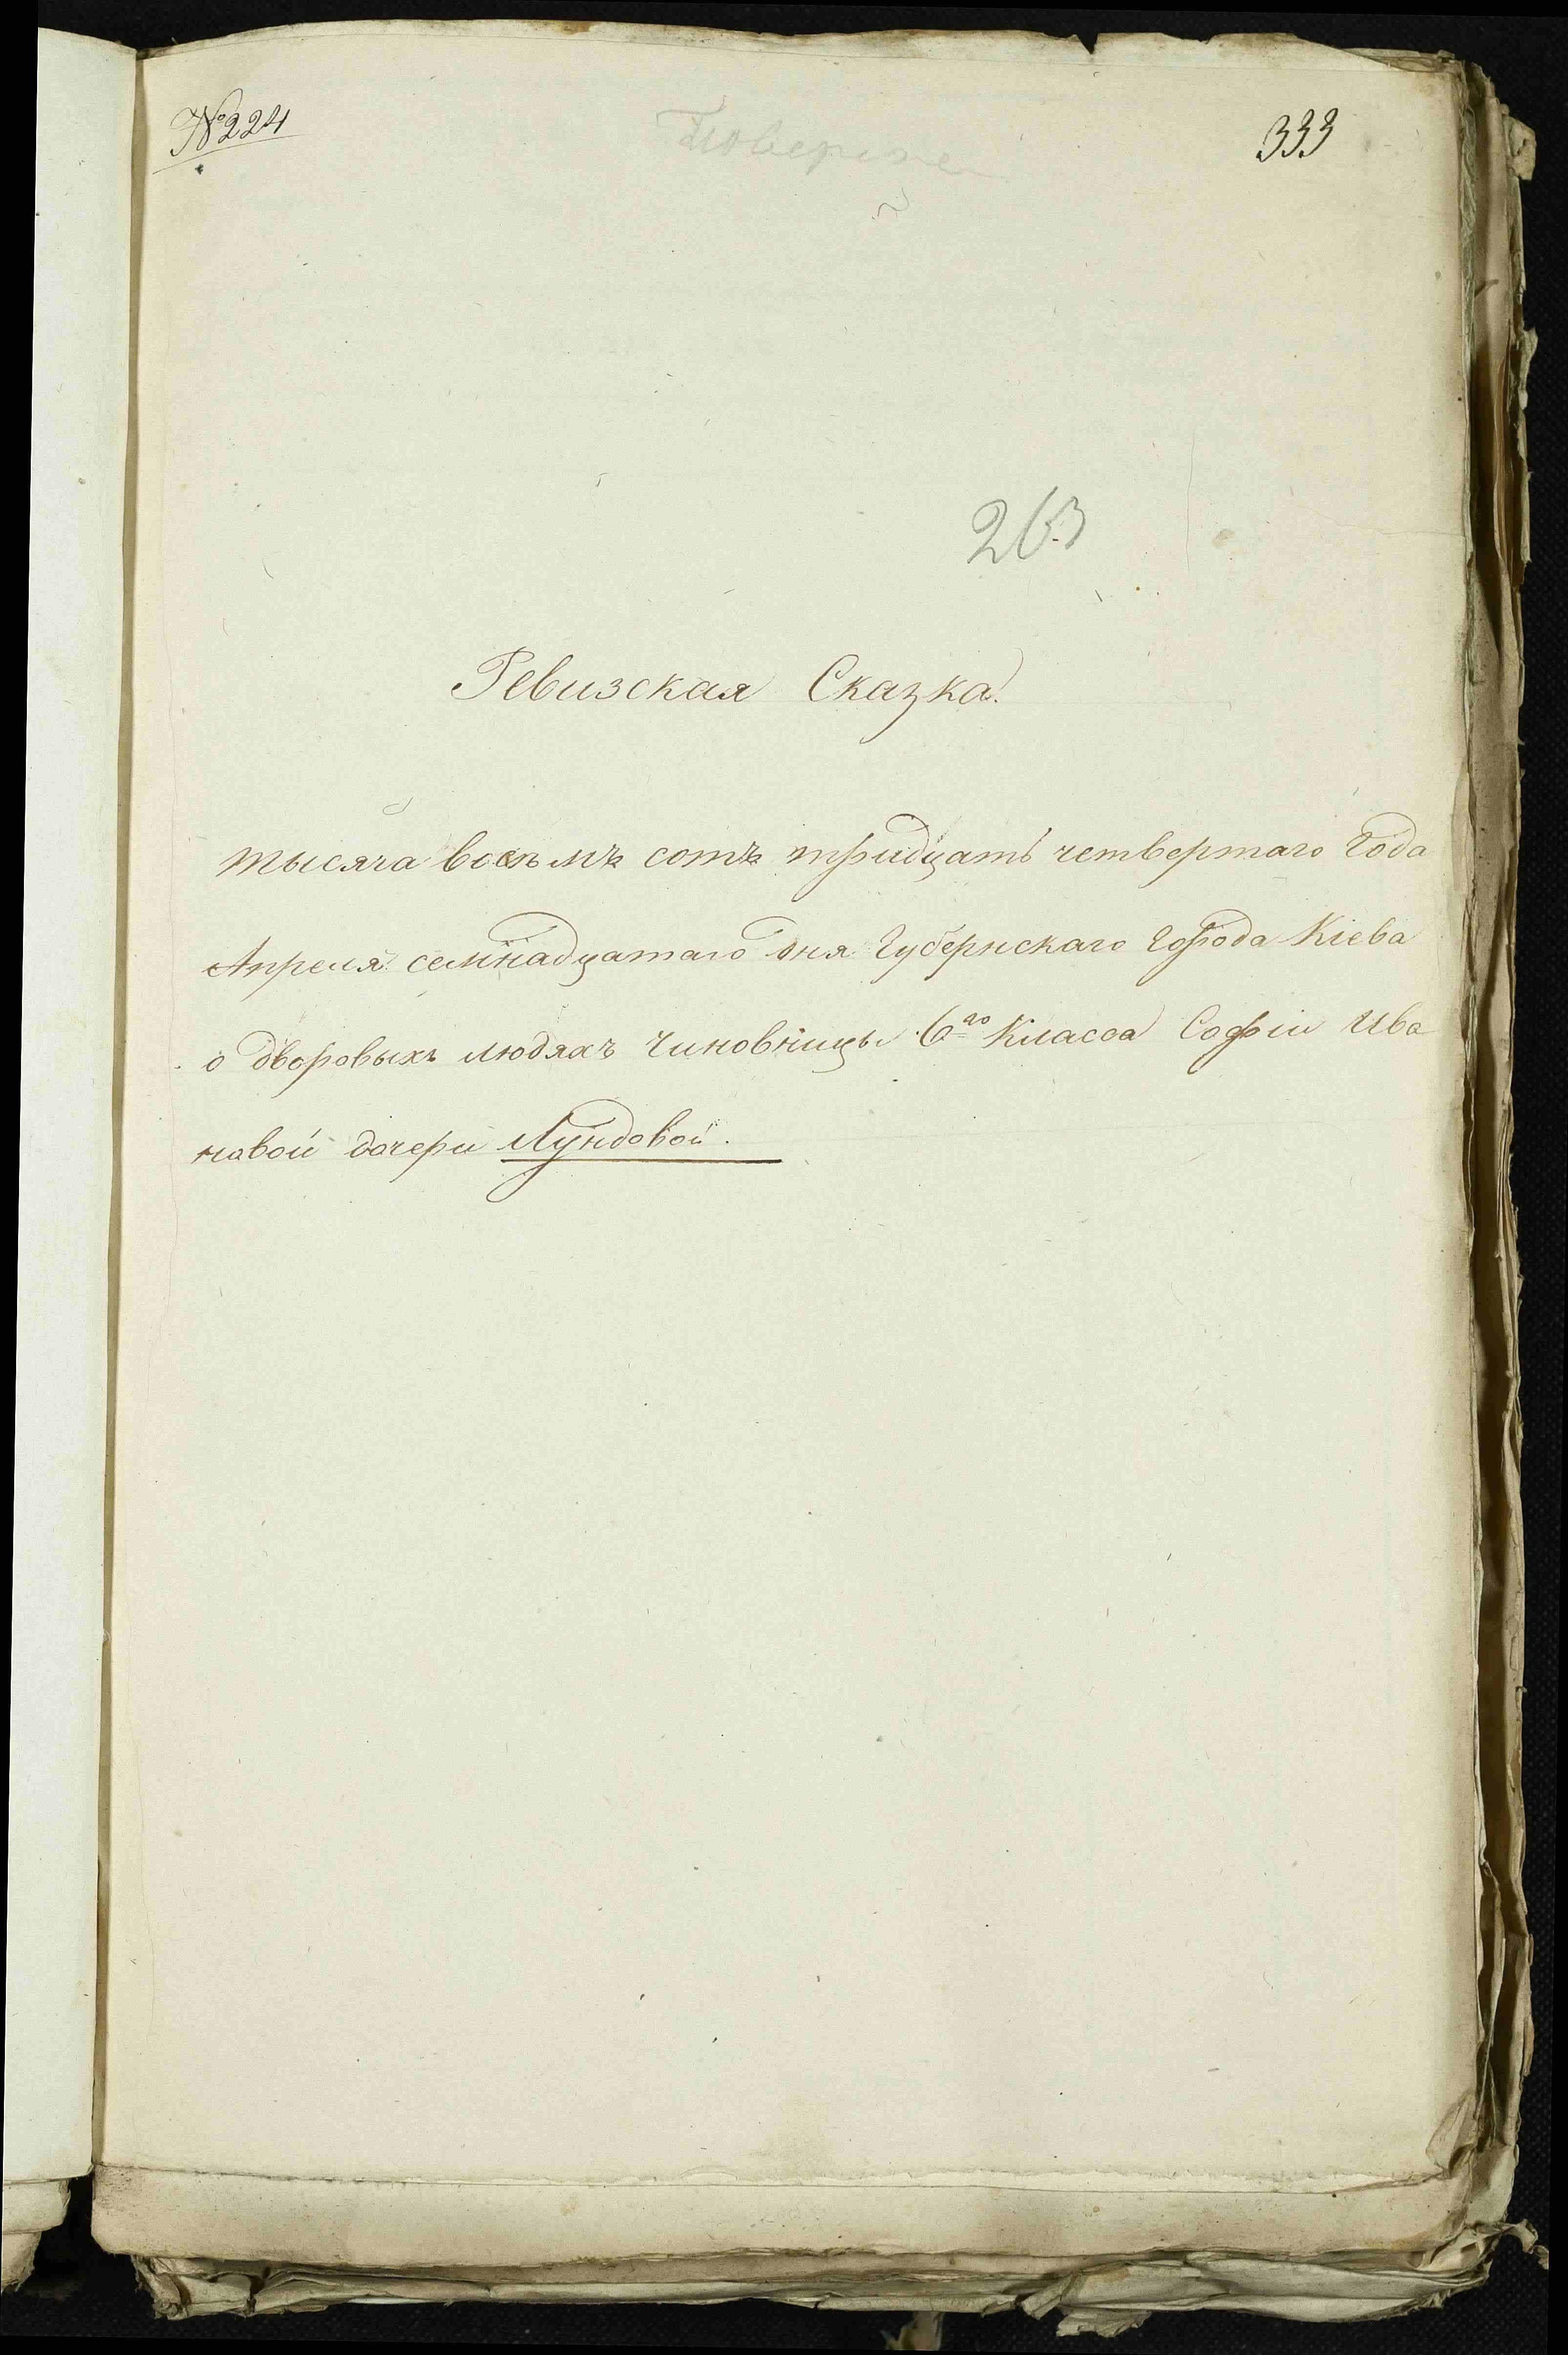 № 224
333
263
Ревизская Сказка.
тысяча восъмъ сотъ тридцать четвертаго Года
Апреля семнадцатаго дня Губернскаго Города Кіева
о дворовыхъ людяхъ Чиновницы 6го Класса Софіи Ива
новой дочери Лундовой.